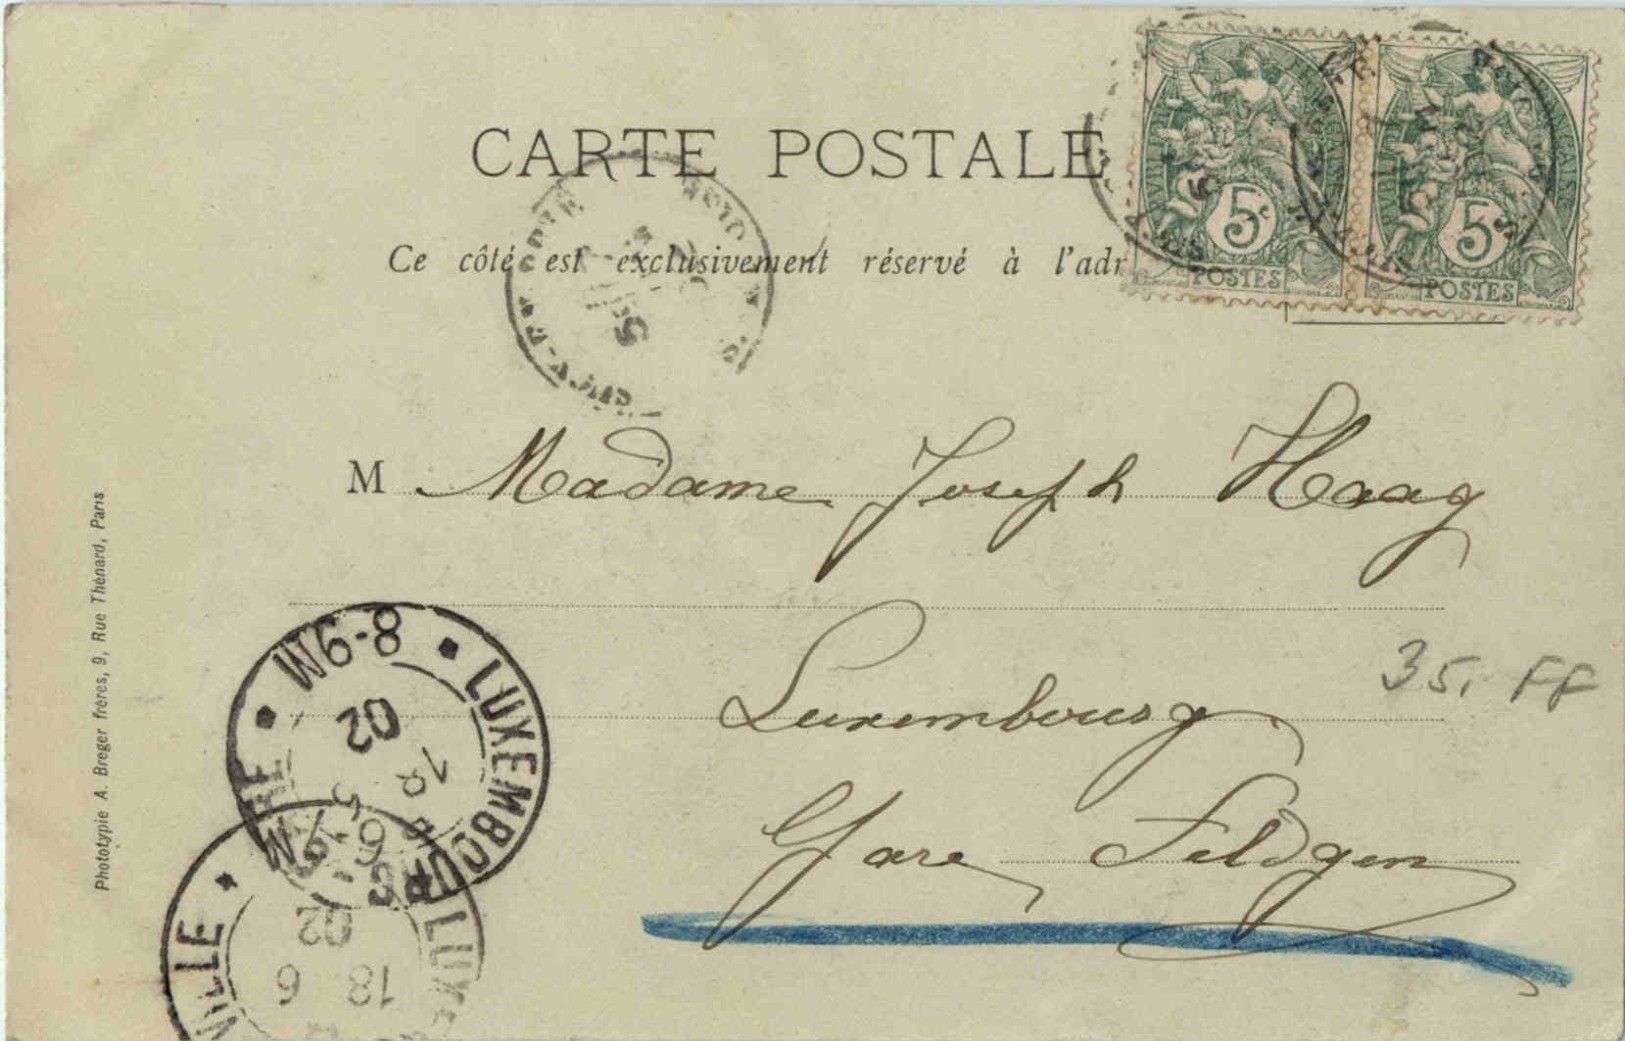 CARTE POSTALE
Ce côté est exclusivement réservé à l'adr
5c
POSTES
5c
POSTES
M Madame Joseph Haag
Luxembourg
35, FF
Gare Feldgen
Phototypie A. Breger frères, 9, Rue Thénard, Paris
LUXEMBOURG GARE
8-9M
02
LUX
VILLE
18 6
02